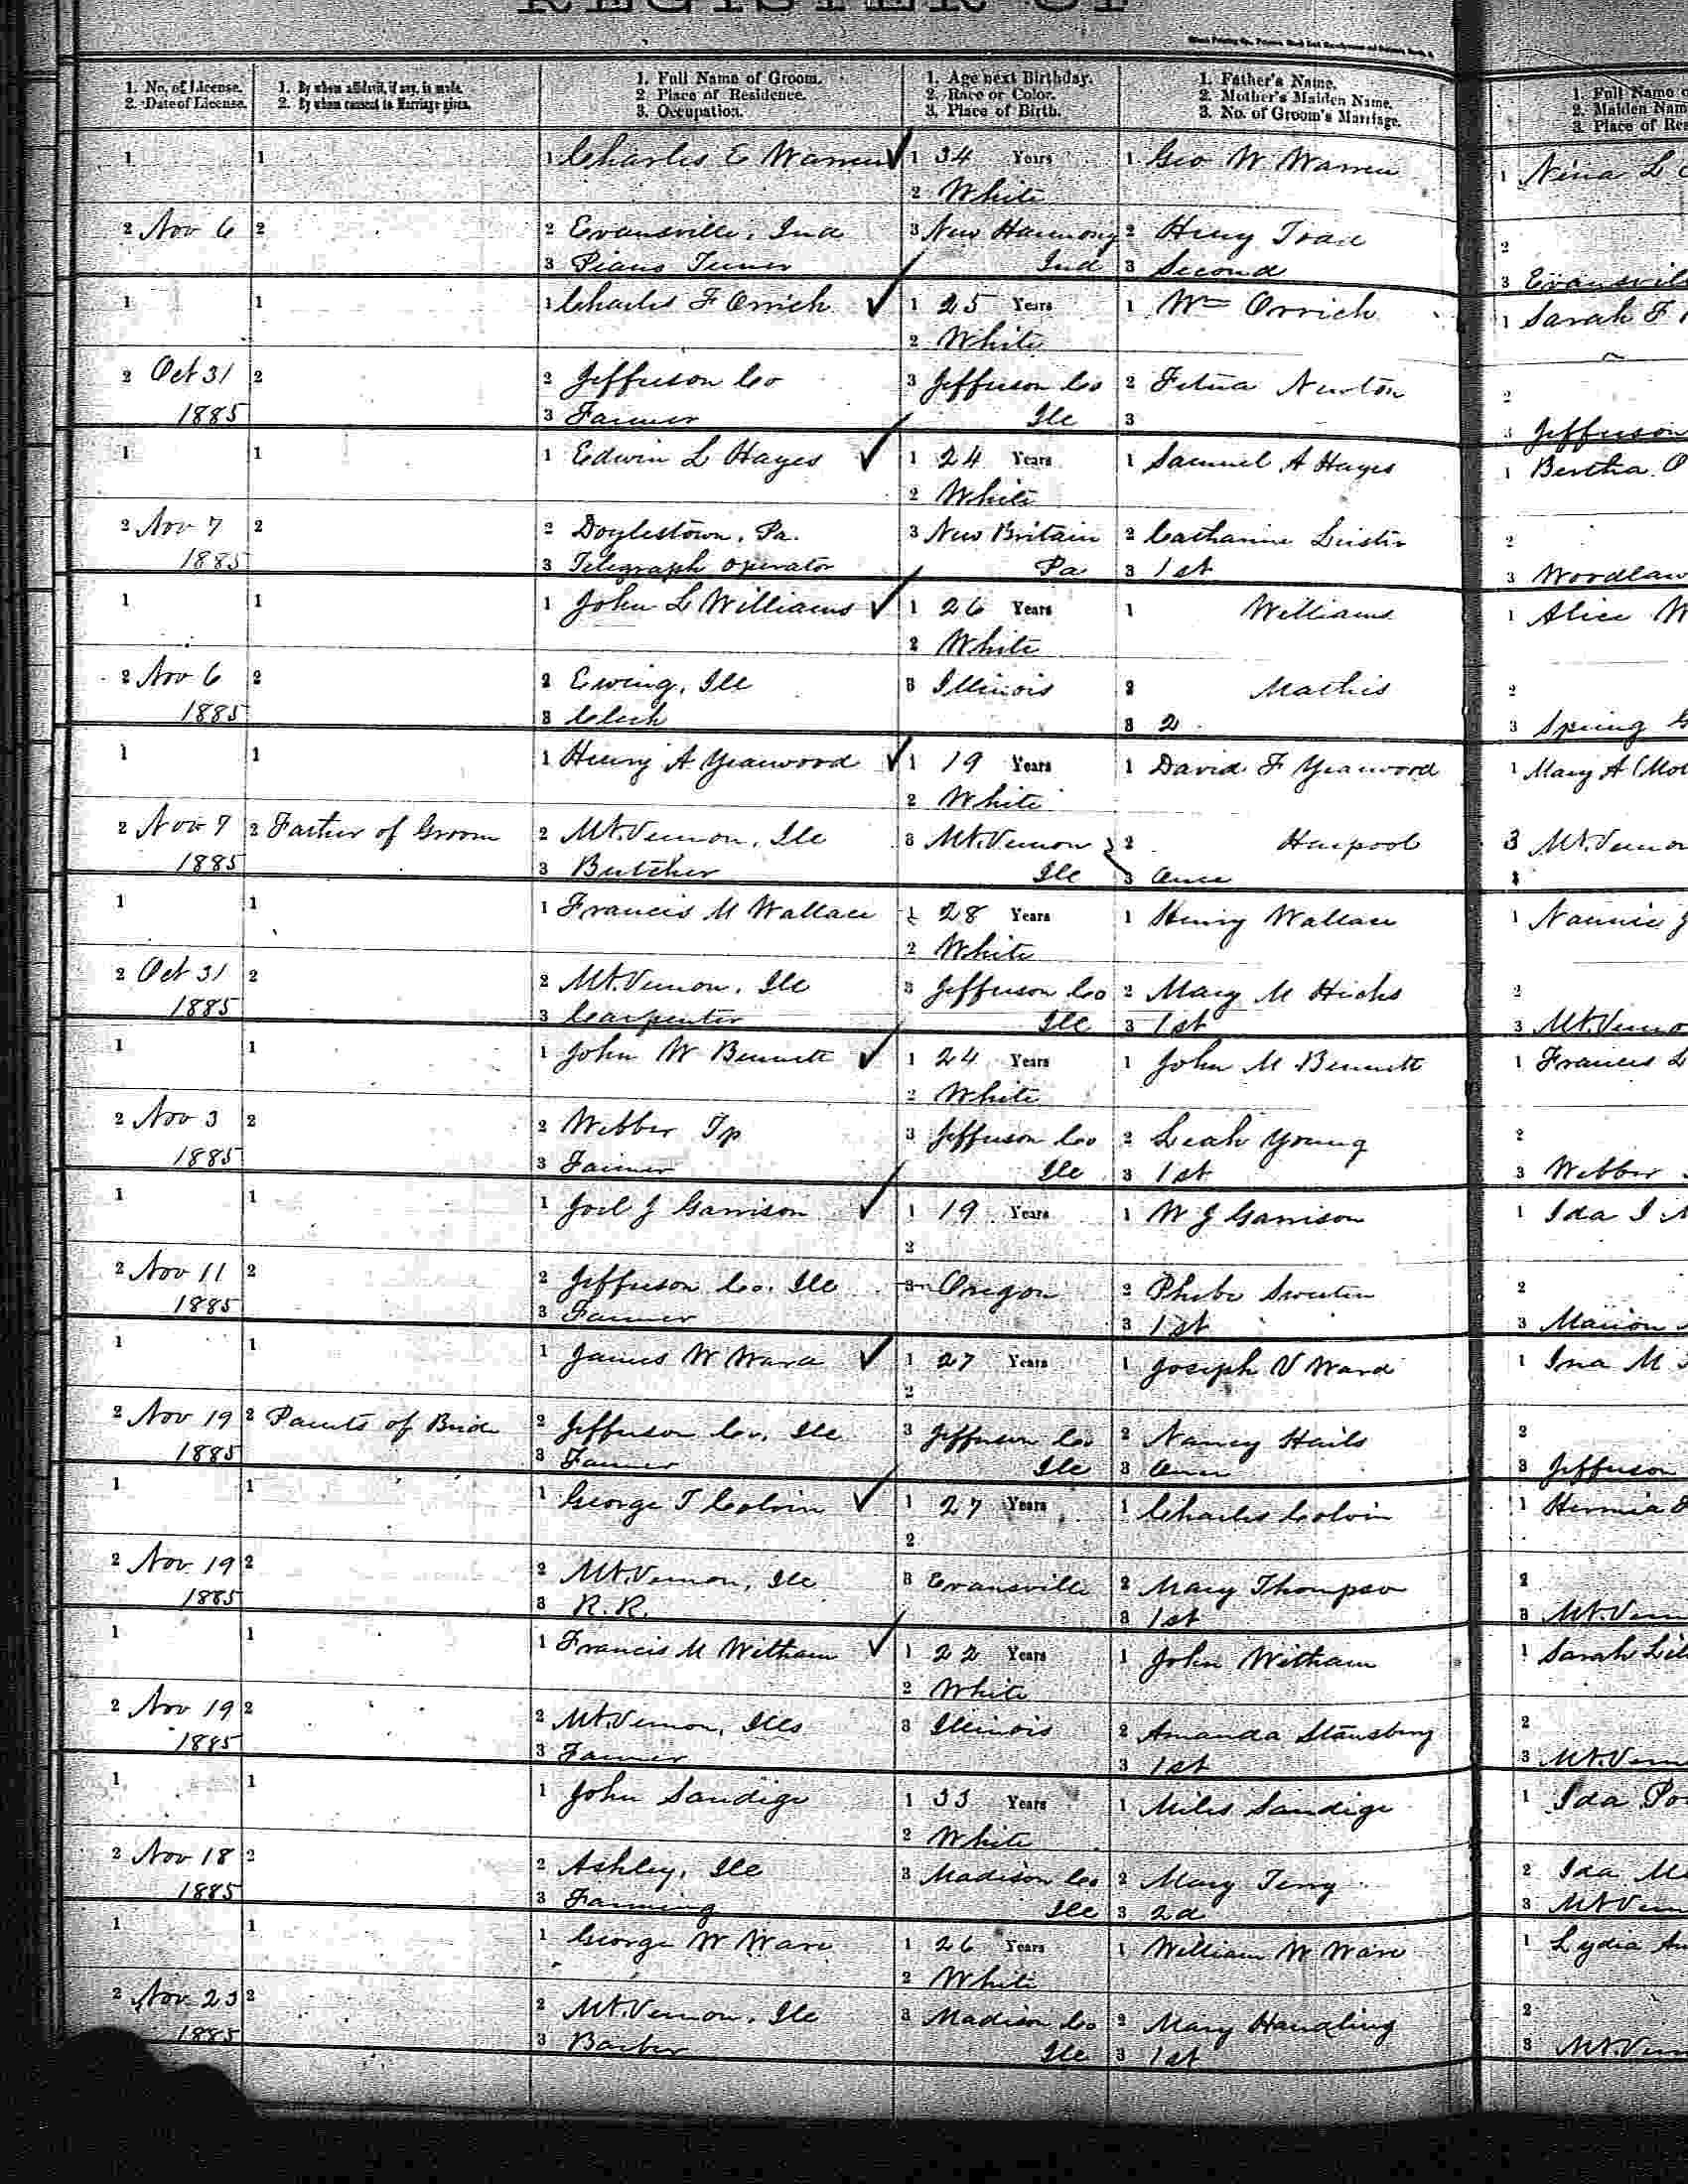 REGISTER OF
1. No. of License. 1. By whom affidavit, if any, is made. 1. Full Name of Groom. 1. Age next Birthday. 1. Father's Name.
2. Date of License. 2. By whom consent to Marriage given. 2. Place of Residence. 2. Race or Color. 2. Mother's Maiden Name.
3. Occupation. 3. Place of Birth. 3. No. of Groom's Marriage.
1 1 1 Charles E Warren 1 34 Years 1 Geo W Warren 1 Nina L
2 White
2 Nov 6 2 2 Evansville, Ind 3 New Harmony 2 2
3 Piano Tuner Ind 3 Second 3 Evansvil
1 1 1 Charles F Orrich 1 25 Years 1 Wm Orrich 1 Sarah F
2 White
2 Oct 31 2 2 Jefferson Co 3 Jefferson Co 2 Newton 2
1885 3 Farmer Ill 3 3 Jefferson
1 1 1 Edwin L Hayes 1 24 Years 1 Samuel A Hayes 1 Bertha
2 White
2 Nov 7 2 2 Doylestown, Pa. 3 New Britain 2 Catharine 2
1885 3 Telegraph operator Pa 3 1st 3 Woodlaw
1 1 1 John L Williams 1 26 Years 1 Williams 1 Alice
2 White
2 Nov 6 2 2 Ewing, Ill 3 Illinois 2 Mathis 2
1885 3 Clerk 3 2 3 Spring
1 1 1 Henry A Yearwood 1 19 Years 1 David F Yearwood 1 Mary A (Mot
2 White
2 Nov 7 2 Father of Groom 2 Mt. Vernon, Ill 3 Mt. Vernon 2 Harpool 3 Mt. Vernon
1885 3 Butcher Ill 3 Once
1 1 1 Francis M Wallace 1 28 Years 1 Henry Wallace 1 Nannie J
2 White
2 Oct 31 2 2 Mt. Vernon, Ill 3 Jefferson Co 2 Mary M Hicks 2
1885 3 Carpenter Ill 3 1st 3 Mt. Verno
1 1 1 John W Bennett 1 24 Years 1 John M Bennett 1 Frances L
2 White
2 Nov 3 2 2 Webber Tp 3 Jefferson Co 2 Leah Young 2
1885 3 Farmer Ill 3 1st 3 Webber
1 1 1 Joel J Garrison 1 19 Years 1 W J Garrison 1 Ida I
2
2 Nov 11 2 2 Jefferson Co. Ill 3 Oregon 2 Phebe 2
1885 3 Farmer 3 1st 3 Marion
1 1 1 James W Ward 1 27 Years 1 Joseph V Ward 1 Ina M
2
2 Nov 19 2 Parents of Bride 2 Jefferson Co, Ill 3 Jefferson Co 2 Nancy Hails 2
1885 3 Farmer Ill 3 Once 3 Jefferson
1 1 1 George T Colvin 1 27 Years 1 Charles Colvin 1
2
2 Nov 19 2 2 Mt. Vernon, Ill 3 Evansville 2 Mary Thompson 2
1885 3 R. R. 3 1st 3 Mt. Vern
1 1 1 Francis M Witham 1 22 Years 1 John Witham 1 Sarah
2 White
2 Nov 19 2 2 Mt. Vernon, Ills 3 Illinois 2 Amanda Stansbury 2
1885 3 Farmer 3 1st 3 Mt. Vern
1 1 1 John Sandige 1 33 Years 1 Miles Sandige 1 Ida
2 White
2 Nov 18 2 2 Ashley, Ill 3 Madison Co 2 Mary Terry 2 Ida
1885 3 Farming Ill 3 2d 3 Mt Vern
1 1 1 George W Ware 1 26 Years 1 William W Ware 1 Lydia
2 White
2 Nov 23 2 2 Mt. Vernon, Ill 3 Madison Co 2 Mary Handling 2
1885 3 Barber Ill 3 1st 3 Mt. Vern